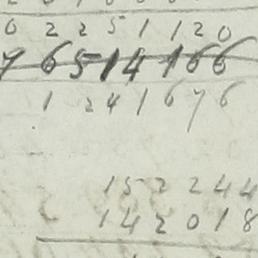 0 2 2 5 1 1 2 0
7 6 5 1 4 1 6 6
1 2 4 1 6 7 6
1 5 2 2 4 4
1 4 2 0 1 8